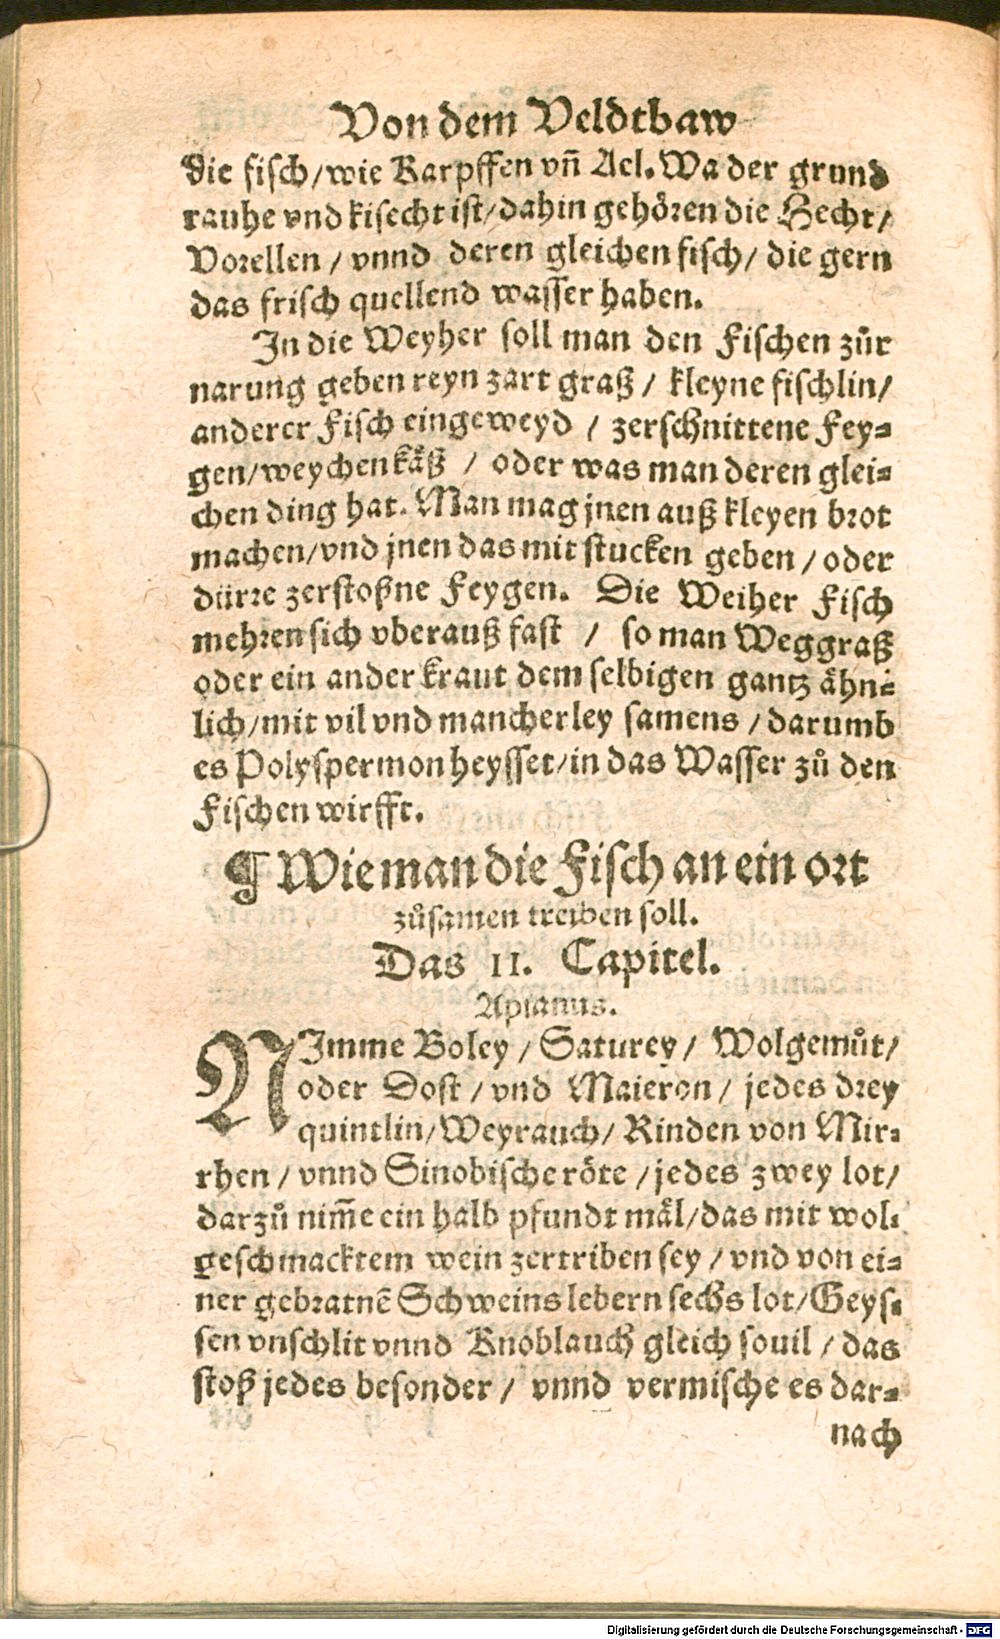 Von dem Veldtbaw
die fisch/wie Karpffen vñ Ael. Wa der grund
rauhe vnd kisecht ist/dahin gehören die Hecht/
Vorellen / vnnd deren gleichen fisch/ die gern
das frisch quellend wasser haben.
In die Weyher soll man den Fischen zůr
narung geben reyn zart graß / kleyne fischlin/
anderer Fisch eingeweyd / zerschnittene Fey-
gen/weychen käß / oder was man deren glei-
chen ding hat. Man mag jnen auß kleyen brot
machen/vnd jnen das mit stucken geben / oder
dürre zerstoßne Feygen. Die Weiher Fisch
mehren sich vberauß fast / so man Weggraß
oder ein ander kraut dem selbigen gantz ähn-
lich/mit vil vnd mancherley samens / darumb
es Polyspermon heysset/in das Wasser zů den
Fischen wirfft.
¶ Wie man die Fisch an ein ort
zůsamen treiben soll.
Das II. Capitel.
Apianus.
NImme Boley / Saturey / Wolgemůt/
oder Dost / vnd Maieron / jedes drey
quintlin/Weyrauch/ Rinden von Mir-
rhen / vnnd Sinobische röte / jedes zwey lot/
darzů nim̃e ein halb pfundt mäl/das mit wol-
geschmacktem wein zertriben sey / vnd von ei-
ner gebratnē Schweins lebern sechs lot/Geys-
sen vnschlit vnnd Knoblauch gleich souil / das
stoß jedes besonder / vnnd vermische es dar-
nach
Digitalisierung gefördert durch die Deutsche Forschungsgemeinschaft - DFG